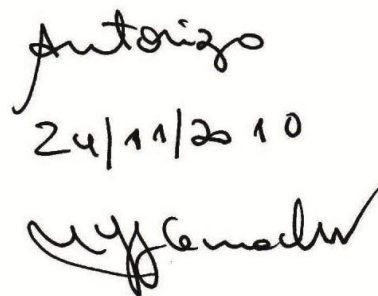 Autorizo
24/11/2010